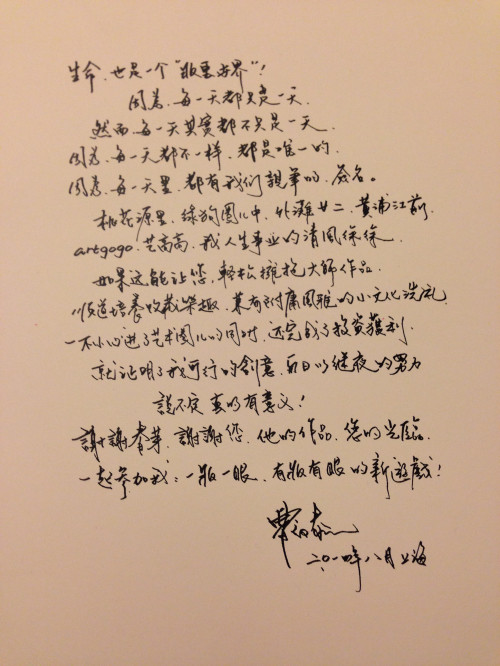 生命.也是一个“版画世界”!
因為.每一天都只是一天.
然而.每一天其實都不只是一天
因為.每一天都不一样.都是唯一的.
因為.每一天里.都有我们親筆的.簽名。
桃花源里.綠狗圈儿中.外灘廿二.黄浦江前.
artgogo.艺高高.我人生事业的清風徐徐
如果这能让您.輕松擁抱大師作品.
順道培養收藏樂趣.兼有附庸風雅的小文化洗礼.
一不小心進了艺术圈儿的同时.还完成了投资獲利.
就证明了我可行的創意.和日以继夜的努力
說不定真的有意义!
謝謝春芽.謝謝您.他的作品.您的光臨.
一起参加我:一版一眼.有版有眼的新遊戲!
二〇一四年八月上海